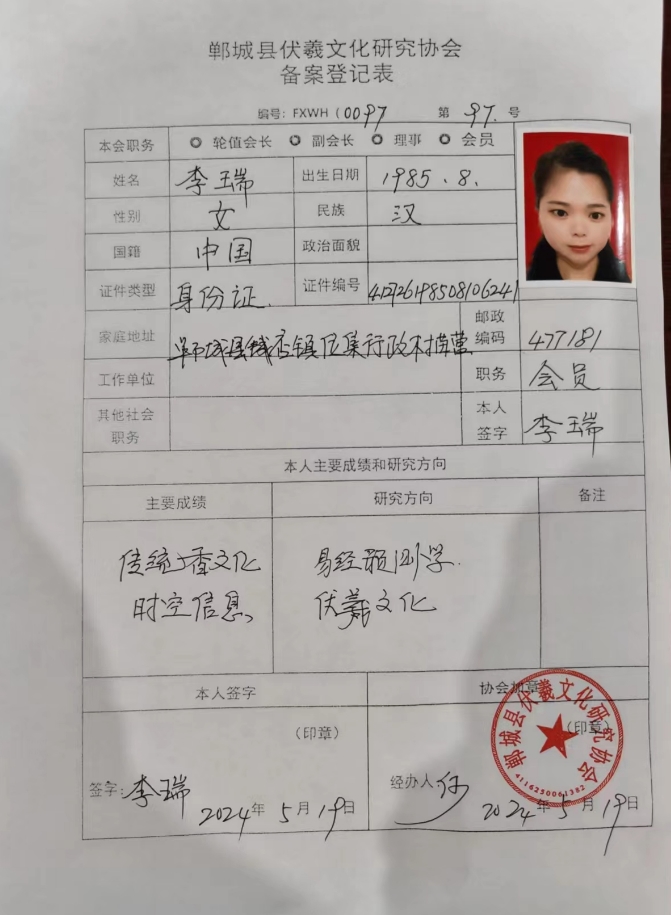 郸城县伏羲文化研究协会
备案登记表
编号：FXWH（0097 第 97. 号
本会职务 轮值会长 副会长 理事 会员
姓名 李瑞 出生日期 1985.8.
性别 女 民族 汉
国籍 中国 政治面貌
证件类型 身份证. 证件编号 412726198508106241
家庭地址 郸城县钱店镇伍集行政村 邮政编码 477181
工作单位 职务 会员
其他社会职务 本人签字 李瑞
本人主要成绩和研究方向
主要成绩 研究方向 备注
传统上香文化 易经预测学.
时空信息、 伏羲文化
本人签字 协会加章
（印章） （印章）
签字：李瑞 经办人
2024年5月19日 2024年5月19日
郸城县伏羲文化研究协会
4116250061382